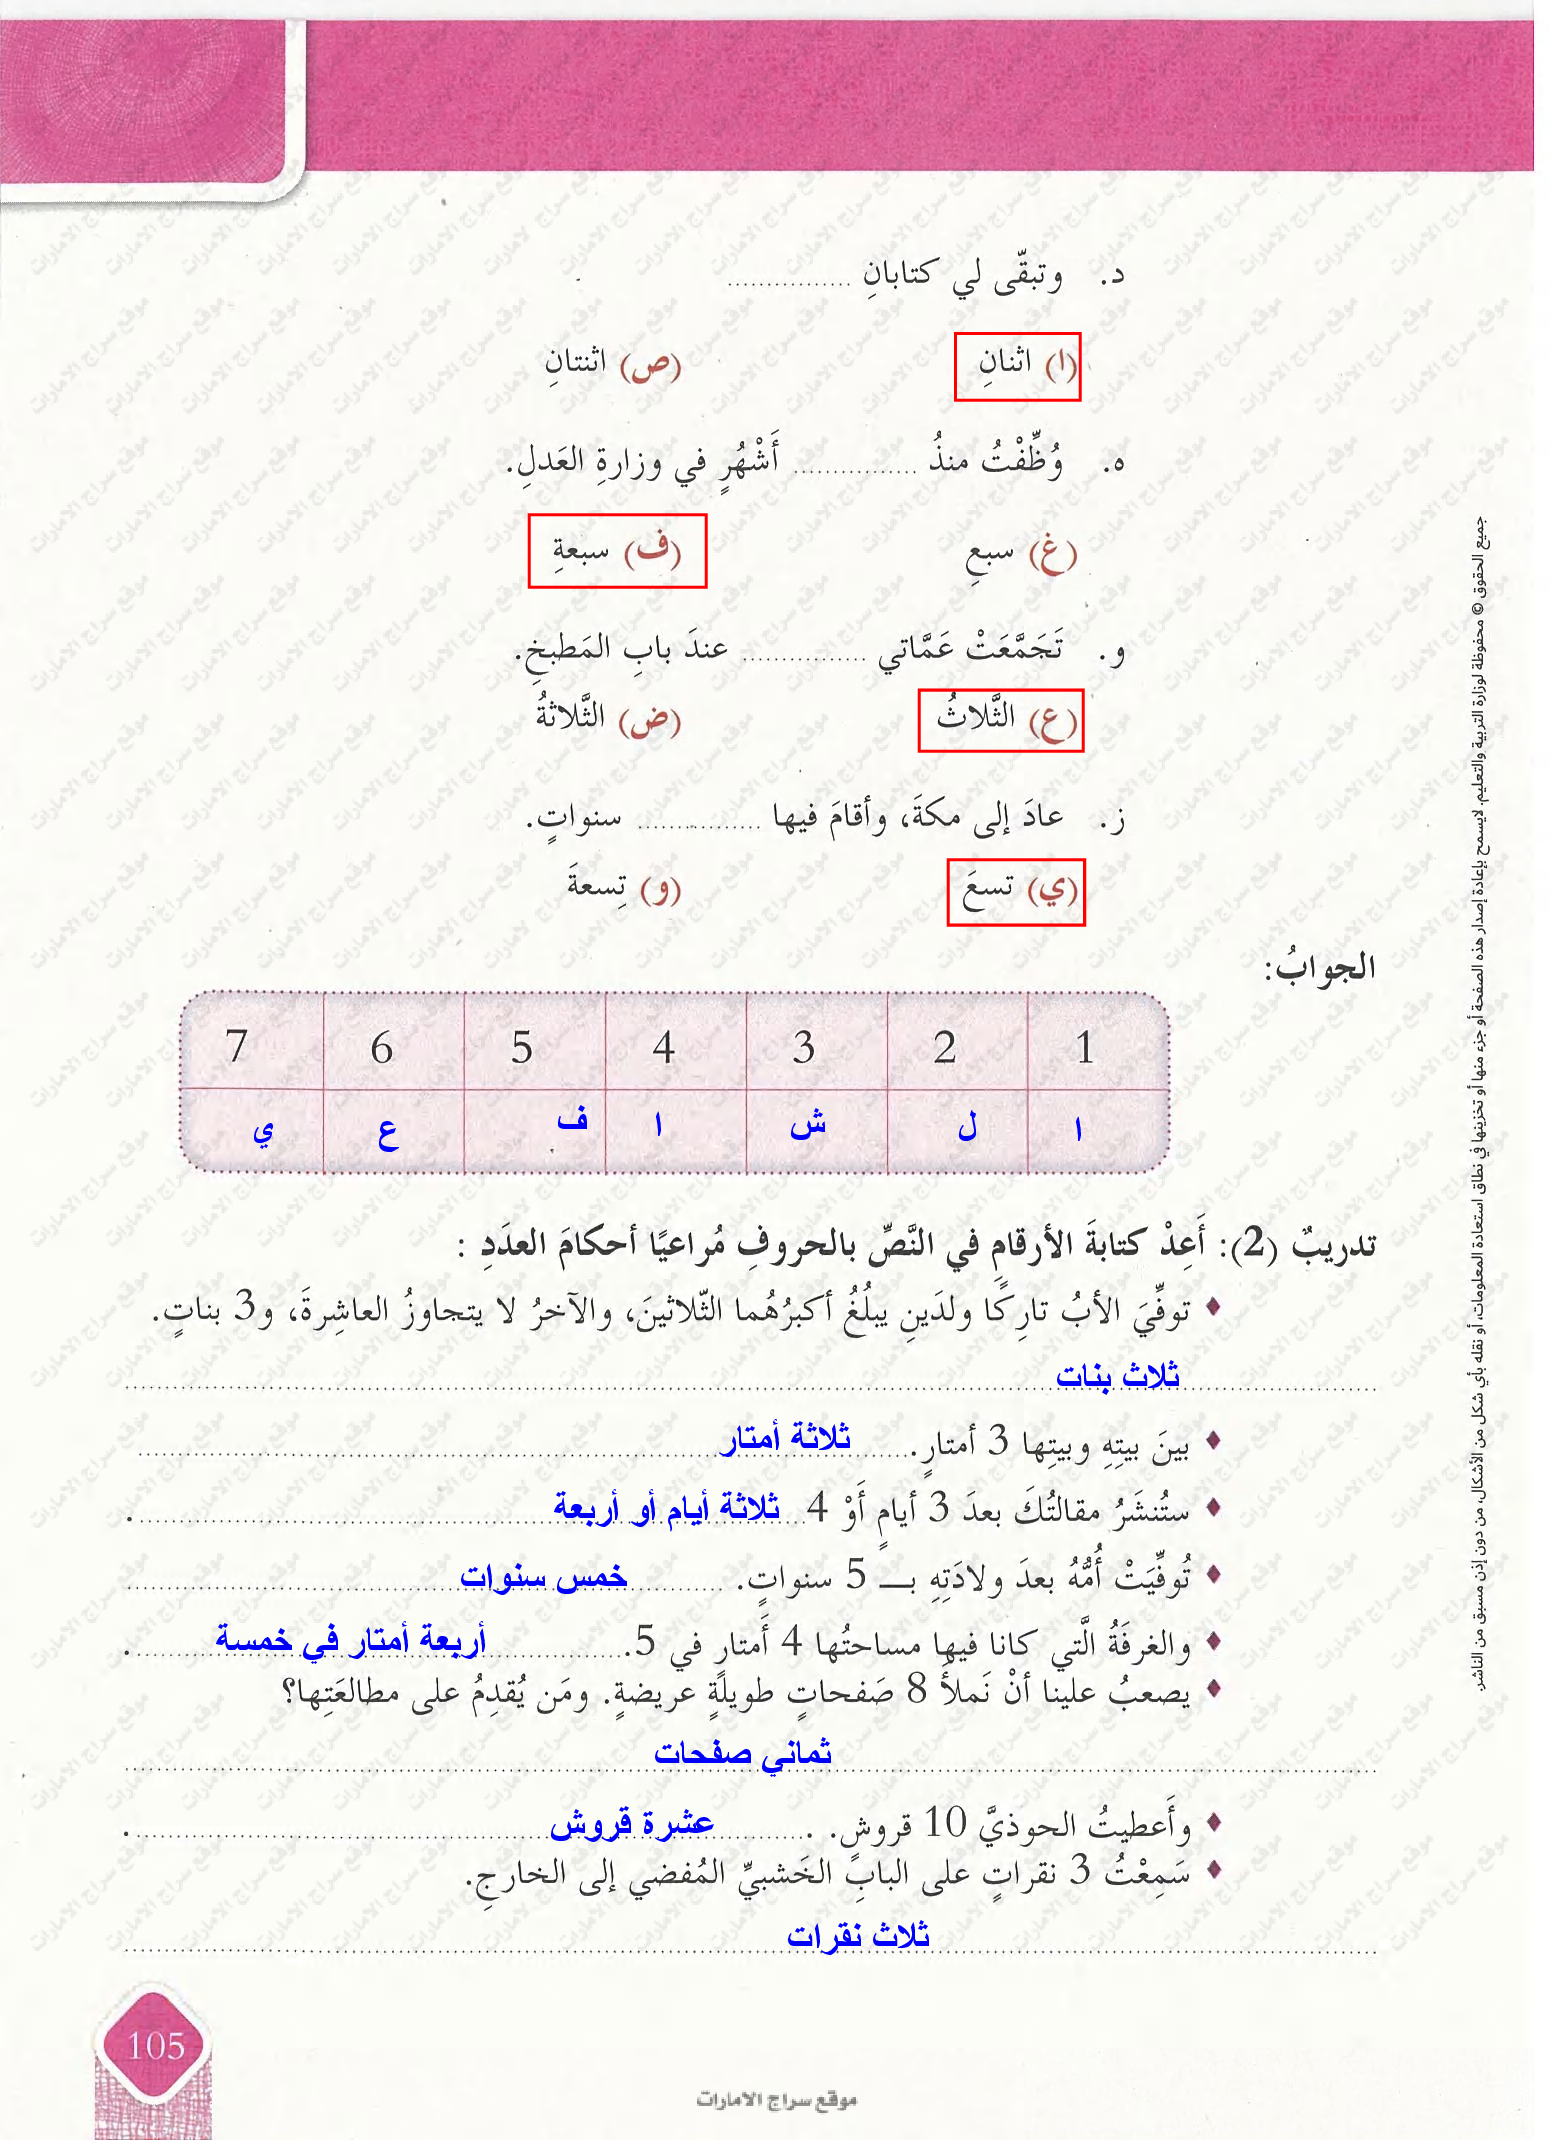 د. وتبقّى لي كتابانِ ................
(ا) اثنانِ (ص) اثنتانِ
ه. وُظِّفْتُ منذُ ................ أَشْهُرٍ في وزارةِ العَدلِ.
(غ) سبعِ (ف) سبعةِ
و. تَجَمَّعَتْ عَمَّاتي ................ عندَ بابِ المَطبخِ.
(ع) الثَّلاثُ (ض) الثَّلاثةُ
ز. عادَ إلى مكةَ، وأقامَ فيها ................ سنواتٍ.
(ي) تسعَ (و) تِسعةَ
الجوابُ:
1 2 3 4 5 6 7
ا ل ش ا ف ع ي
تدريبٌ (2): أَعِدْ كتابةَ الأرقامِ في النَّصِّ بالحروفِ مُراعيًا أحكامَ العدَدِ :
♦ توفِّيَ الأبُ تارِكًا ولدَينِ يبلُغُ أكبرُهُما الثّلاثينَ، والآخرُ لا يتجاوزُ العاشِرةَ، و3 بناتٍ.
ثلاث بنات
♦ بينَ بيتِهِ وبيتِها 3 أمتارٍ. ثلاثة أمتار
♦ ستُنشَرُ مقالتُكَ بعدَ 3 أيامٍ أَوْ 4 ثلاثة أيام أو أربعة .
♦ تُوفِّيَتْ أُمُّهُ بعدَ ولادَتِهِ بـــ 5 سنواتٍ. خمس سنوات
♦ والغرفَةُ الَّتي كانا فيها مساحتُها 4 أَمتارٍ في 5. أربعة أمتار في خمسة .
♦ يصعبُ علينا أنْ نَملأَ 8 صَفحاتٍ طويلةٍ عريضةٍ. ومَن يُقدِمُ على مطالعَتِها؟
ثماني صفحات
♦ وأَعطيتُ الحوذيَّ 10 قروشٍ. عشرة قروش .
♦ سَمِعْتُ 3 نقراتٍ على البابِ الخَشبيِّ المُفضي إلى الخارجِ.
ثلاث نقرات
جميع الحقوق © محفوظة لوزارة التربية والتعليم. لايسمح بإعادة إصدار هذه الصفحة أو جزء منها أو تخزينها في نطاق استعادة المعلومات، أو نقله بأي شكل من الأشكال، من دون إذن مسبق من الناشر.
105
موقع سراج الامارات